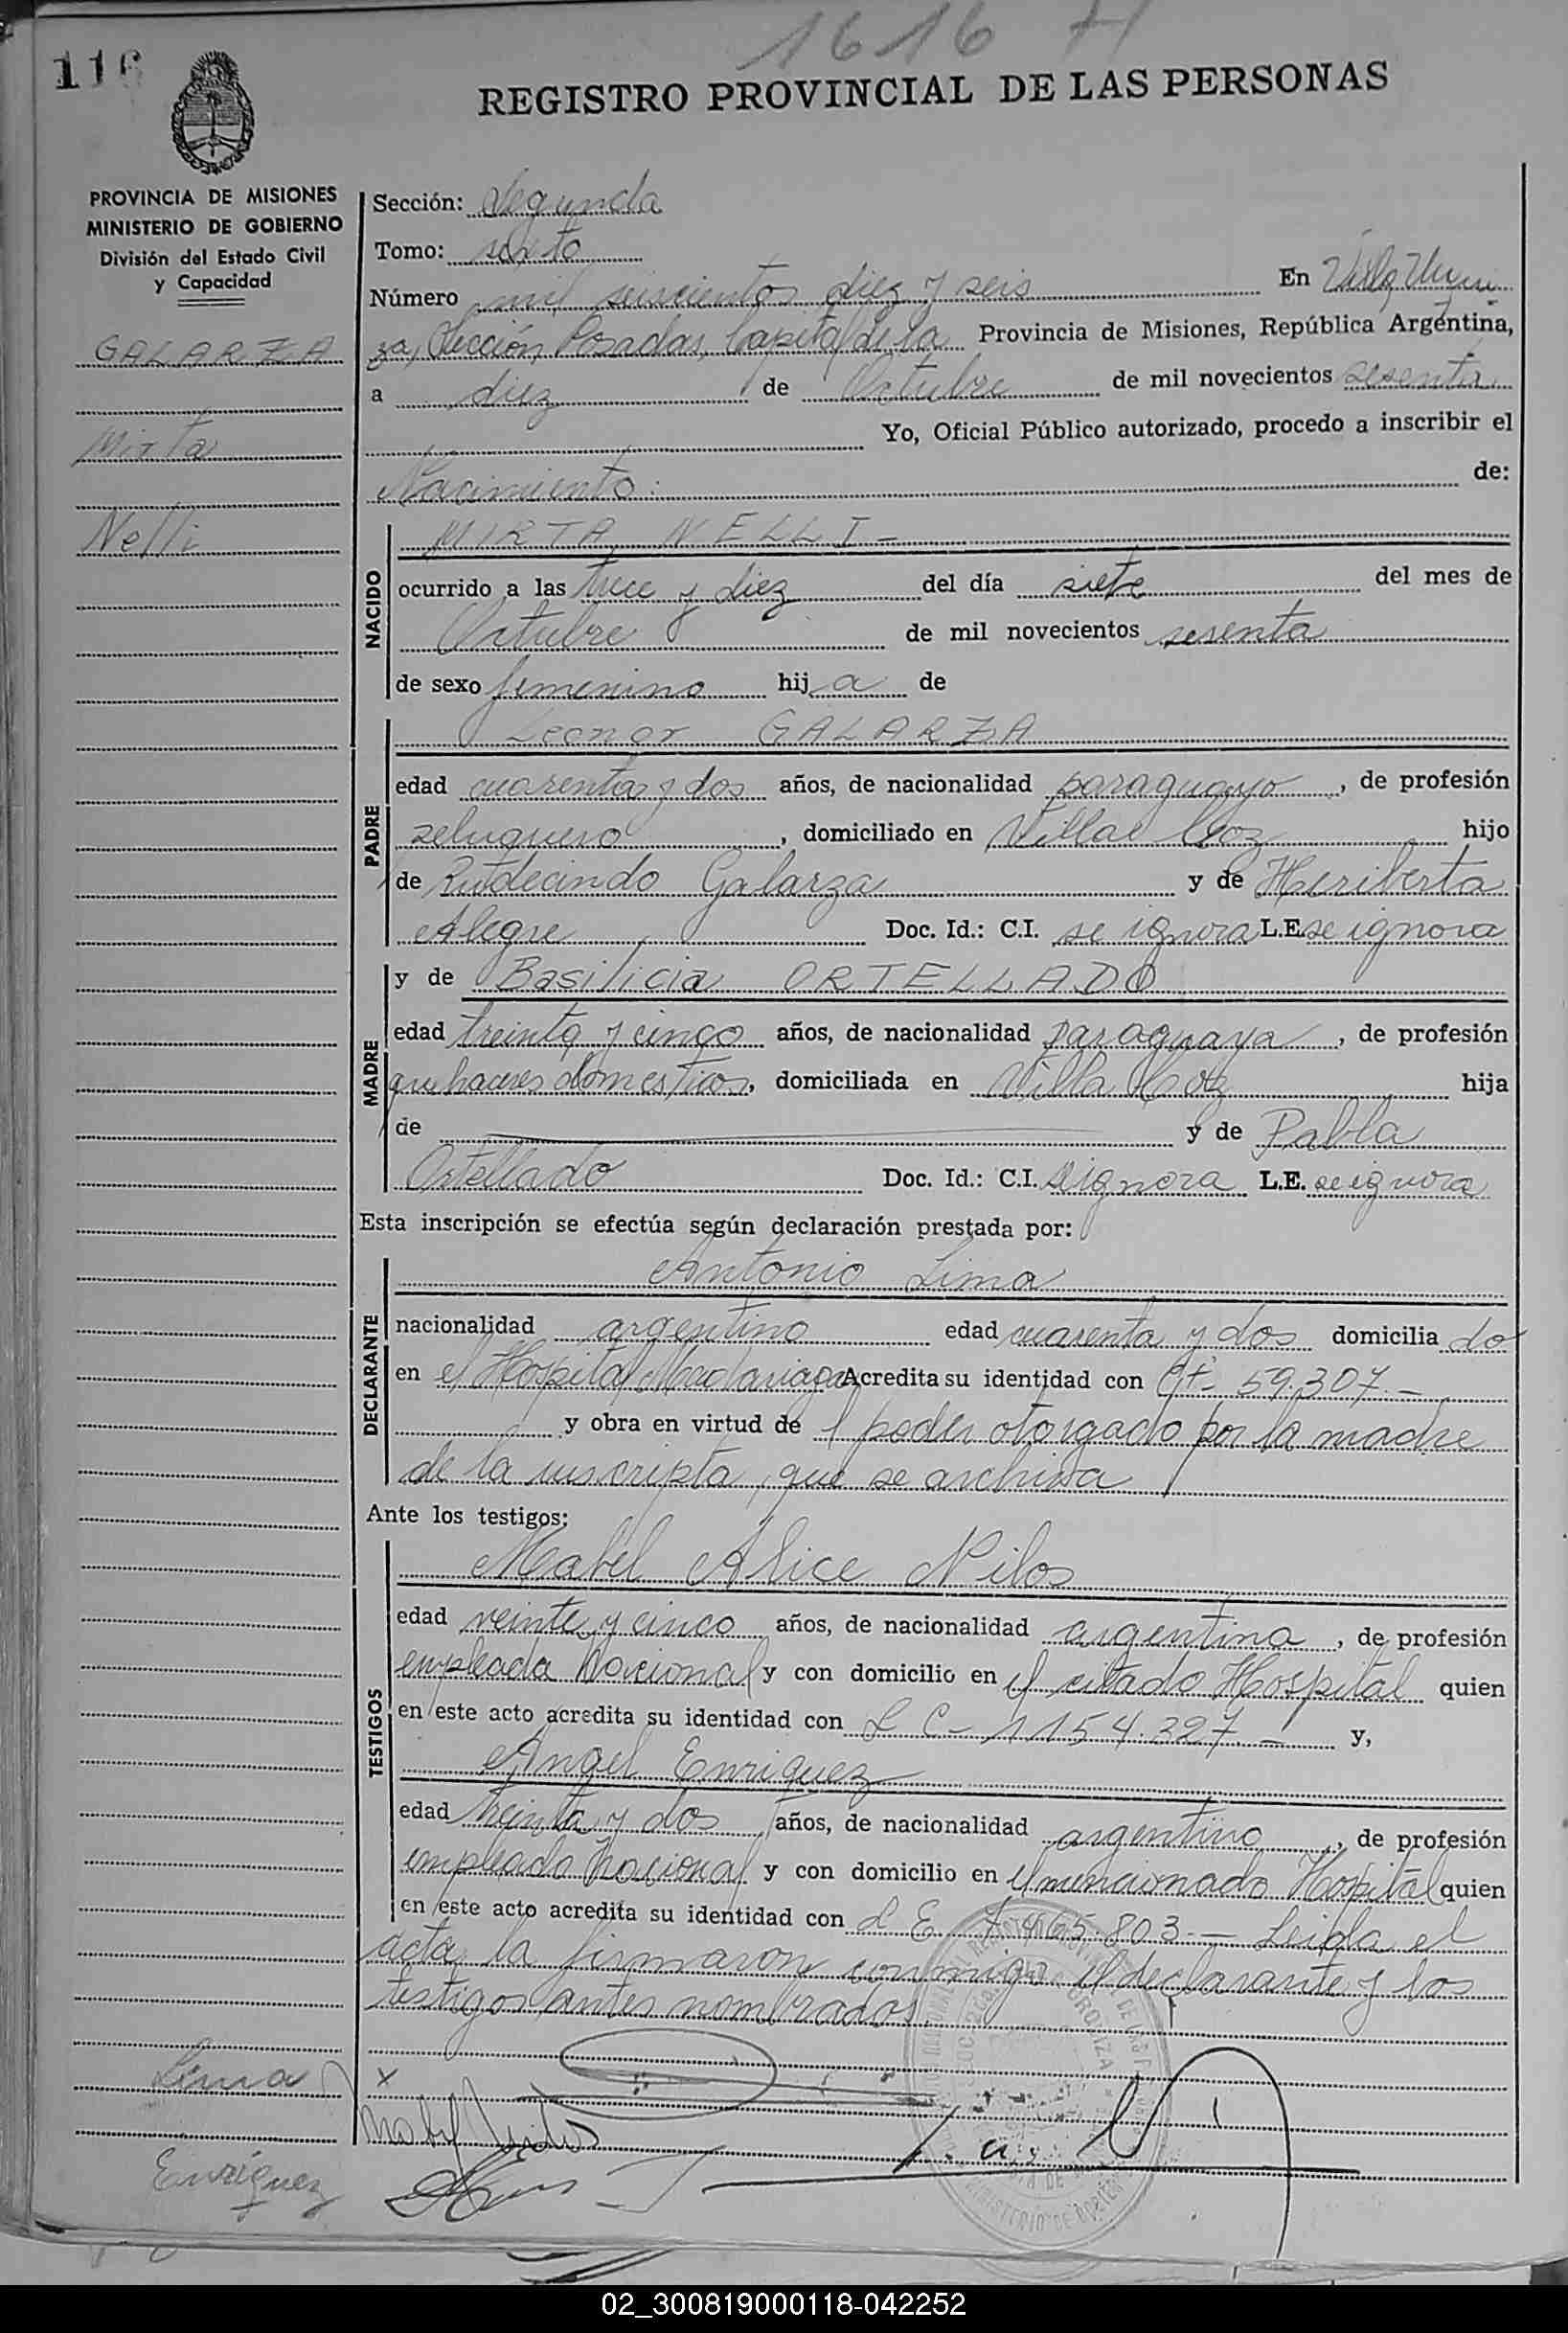 1616
116
REGISTRO PROVINCIAL DE LAS PERSONAS
PROVINCIA DE MISIONES
MINISTERIO DE GOBIERNO
División del Estado Civil
y Capacidad
GALARZA
Mirta
Nelli
Sección: Segunda
Tomo: sexto
Número mil seiscientos diez y seis En Villa Urqui
za, Sección Posadas, Capital de la Provincia de Misiones, República Argentina,
a diez de Octubre de mil novecientos sesenta
Yo, Oficial Público autorizado, procedo a inscribir el
Nacimiento: de:
NACIDO
MIRTA NELLI -
ocurrido a las trece y diez del día siete del mes de
Octubre de mil novecientos sesenta
de sexo femenino hija de
PADRE
Leonor GALARZA
edad cuarenta y dos años, de nacionalidad paraguayo, de profesión
peluquero, domiciliado en Villa Coz hijo
de Rudecindo Galarza y de Heriberta
Alegre Doc. Id.: C.I. se ignora L.E. se ignora
MADRE
y de Basilicia ORTELLADO
edad treinta y cinco años, de nacionalidad paraguaya, de profesión
quehaceres domesticos, domiciliada en Villa Coz hija
de y de Pabla
Ortellado Doc. Id.: C.I. se ignora L.E. se ignora
Esta inscripción se efectúa según declaración prestada por:
DECLARANTE
Antonio Lima
nacionalidad argentino edad cuarenta y dos domiciliado
en el Hospital Madariaga Acredita su identidad con 59.307.-
y obra en virtud del poder otorgado por la madre
de la inscripta, que se archiva
Ante los testigos:
TESTIGOS
Mabel Alice Nilos
edad veinte y cinco años, de nacionalidad argentina, de profesión
empleada Nacional y con domicilio en el citado Hospital quien
en este acto acredita su identidad con L C- 1154.327.- y,
Angel Enriquez
edad treinta y dos años, de nacionalidad argentino, de profesión
empleado Nacional y con domicilio en el mencionado Hospital quien
en este acto acredita su identidad con L E 7.465.803.- Leida el
acta, la firmaron conmigo el declarante y los
testigos antes nombrados.
Lima
Enriquez
02_300819000118-042252